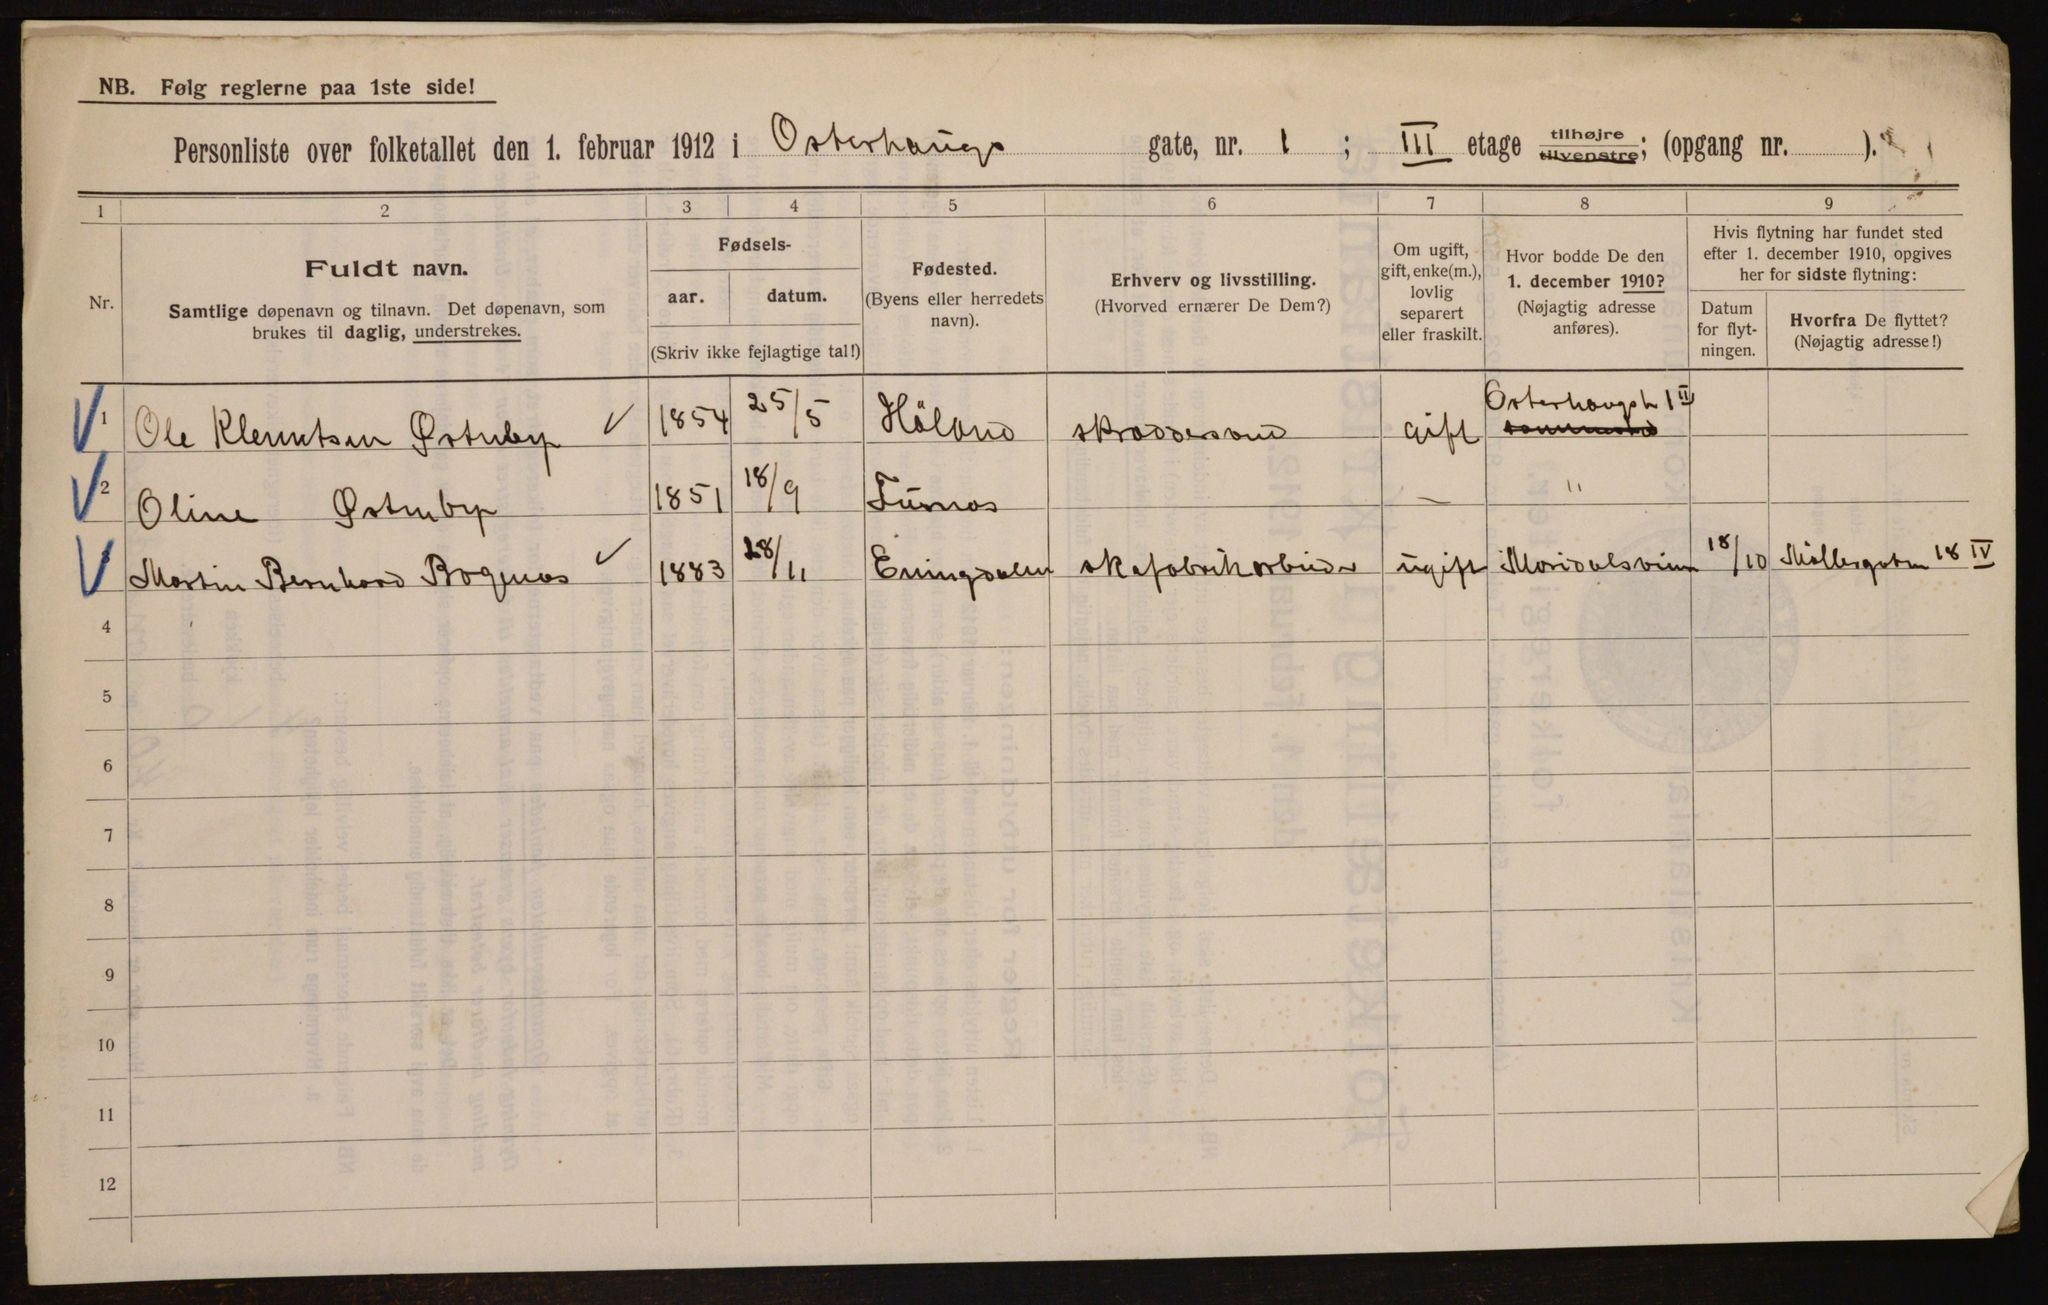 NB. Følg reglerne paa 1ste side!
Personliste over folketallet den 1. februar 1912 i Osterhaugs gate, nr. 1 ; III etage tilhøjre tilvenstre; (opgang nr. ).
1 2 3 4 5 6 7 8 9
Nr.
Fuldt navn.
Samtlige døpenavn og tilnavn. Det døpenavn, som
brukes til daglig, understrekes.
Fødsels-
aar. datum.
(Skriv ikke fejlagtige tal!)
Fødested.
(Byens eller herredets
navn).
Erhverv og livsstilling.
(Hvorved ernærer De Dem?)
Om ugift,
gift, enke(m.),
lovlig
separert
eller fraskilt.
Hvor bodde De den
1. december 1910?
(Nøjagtig adresse
anføres).
Hvis flytning har fundet sted
efter 1. december 1910, opgives
her for sidste flytning:
Datum
for flyt-
ningen.
Hvorfra De flyttet?
(Nøjagtig adresse!)
1 Ole Klemetsen Østnbyp 1854 25/5 Höland skræddersvend gift Osterhaugst 1 II
2 Oline Østnbyp 1851 18/9 Furnæs — "
3 Martin Bernhard Bogenæs 1883 28/11 Eningdalen skofabrikarbeider ugift Maridalsveien 18/10 Möllergaten 18 IV
4
5
6
7
8
9
10
11
12